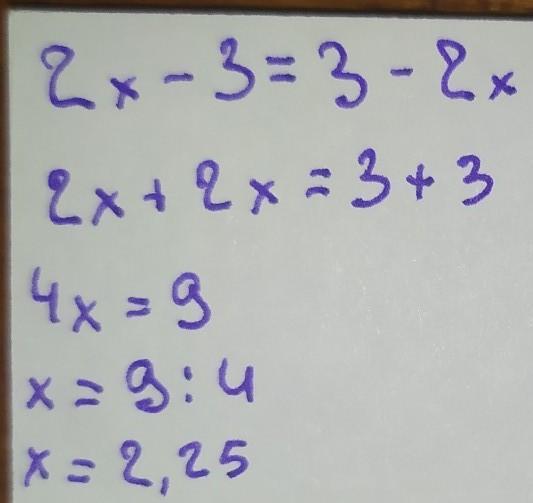 2x - 3 = 3 - 2x
2x + 2x = 3 + 3
4x = 9
x = 9 : 4
x = 2,25